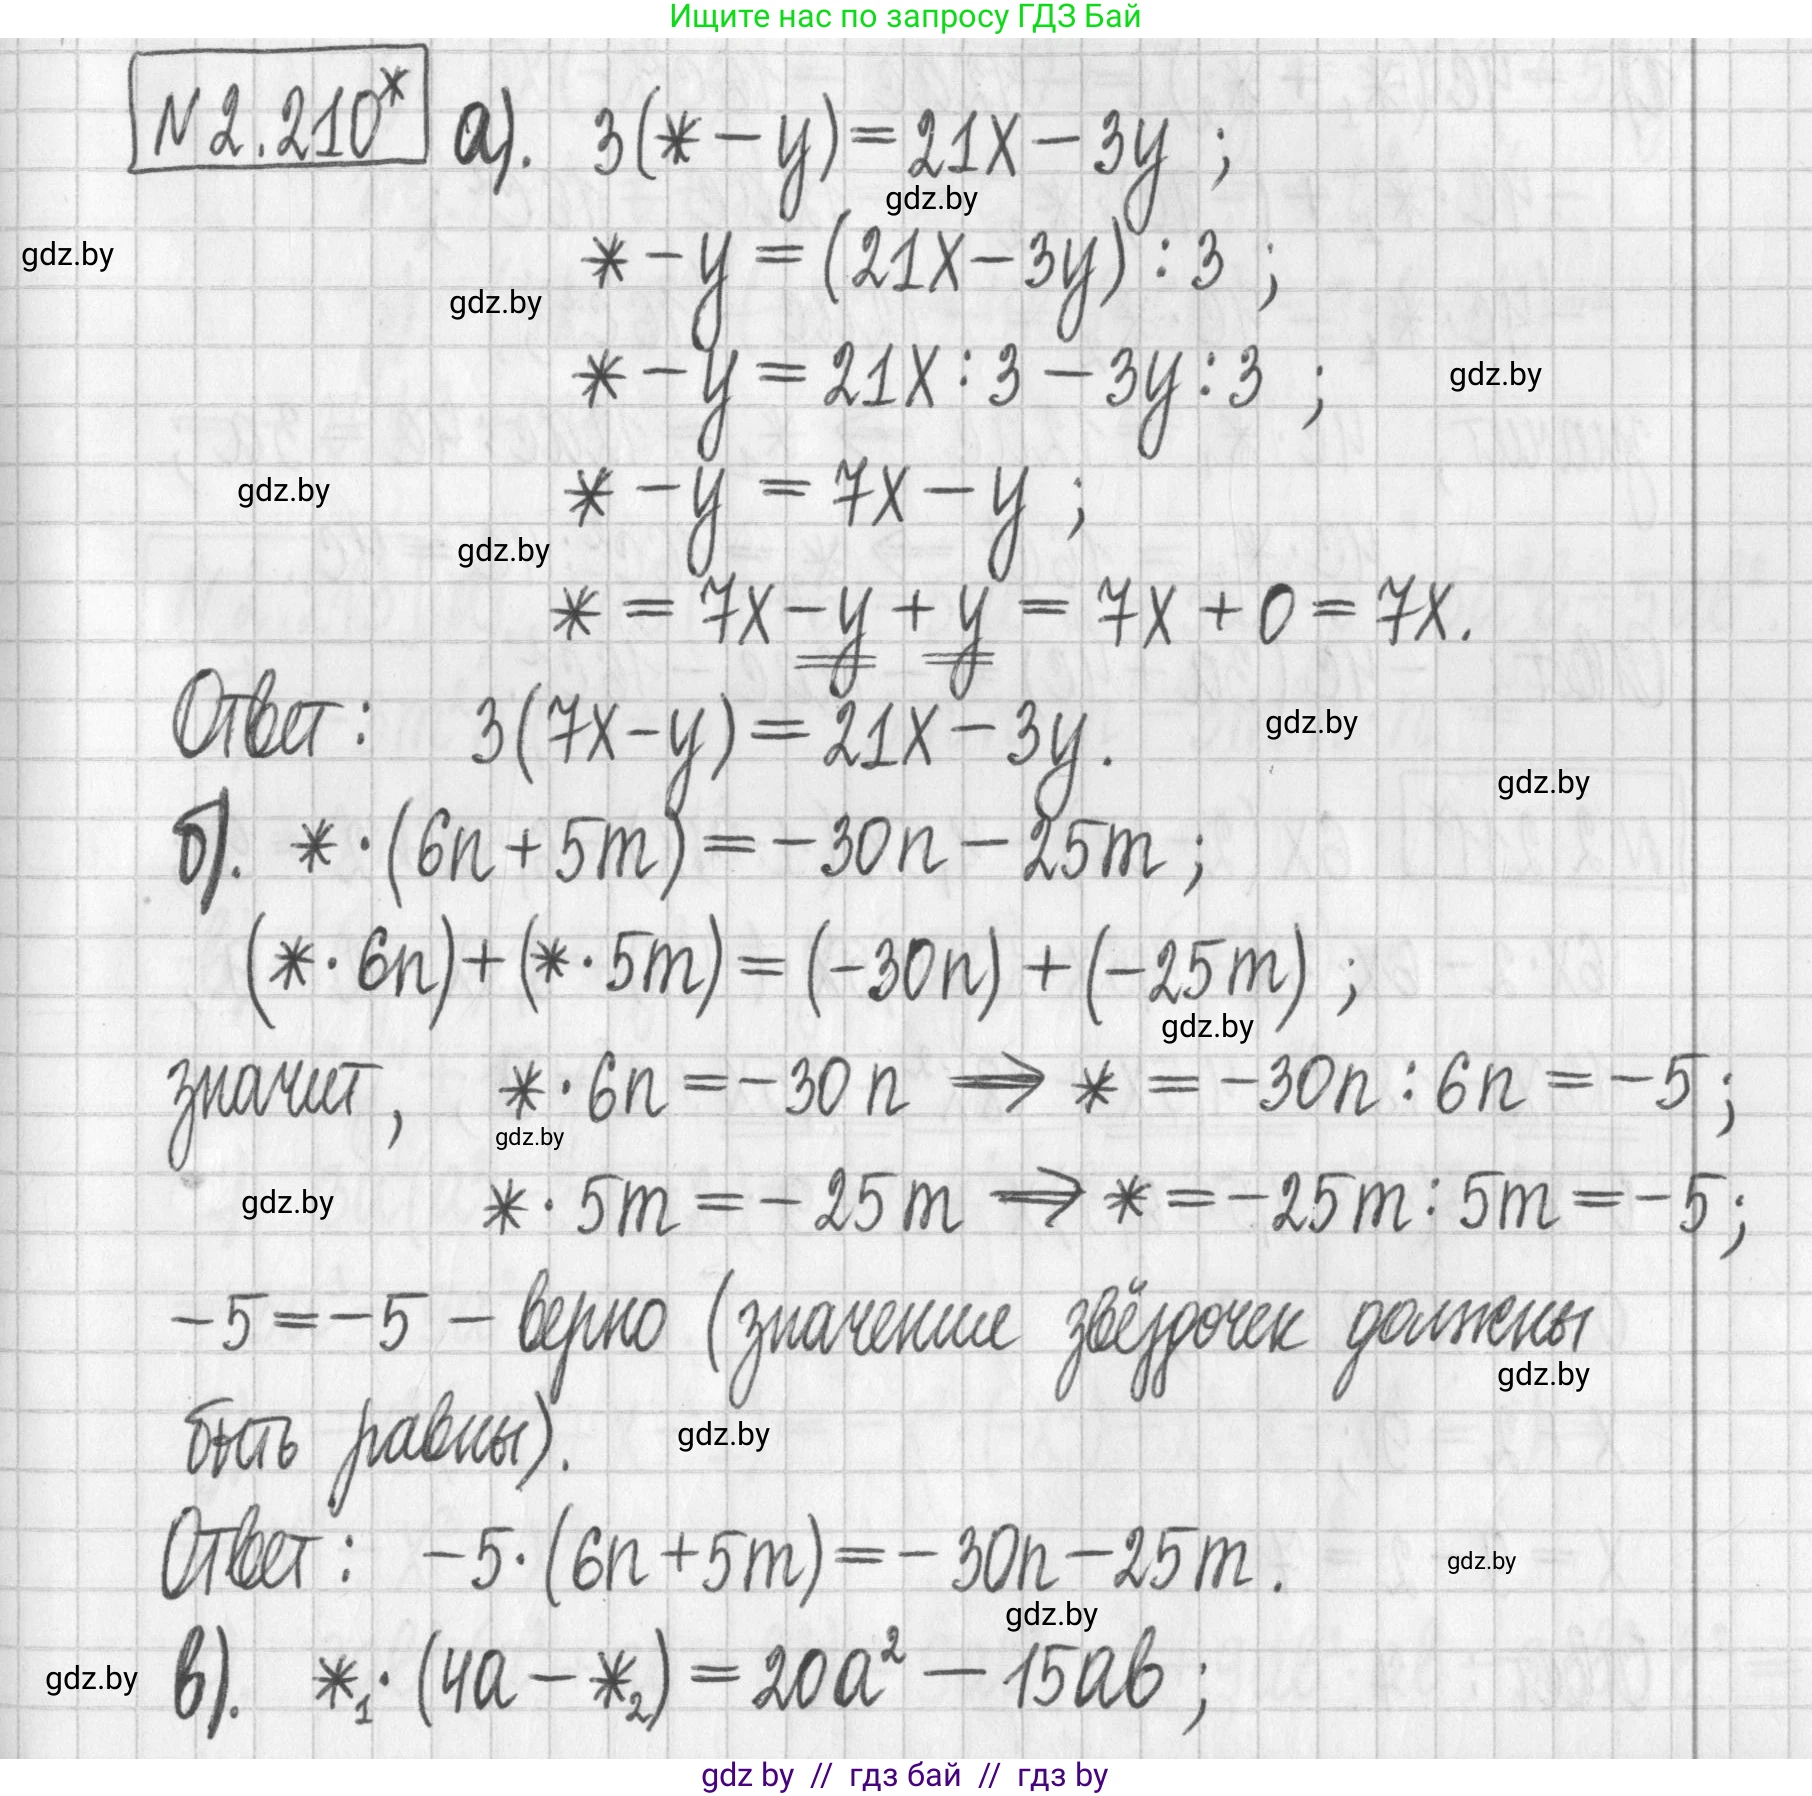 Ищите нас по запросу ГДЗ Бай
N 2.210* а). 3(* - y) = 21x - 3y ;
gdz.by
* - y = (21x - 3y) : 3 ;
gdz.by
gdz.by
* - y = 21x : 3 - 3y : 3 ;
gdz.by
* - y = 7x - y ;
gdz.by
gdz.by
* = 7x - y + y = 7x + 0 = 7x.
Ответ: 3(7x - y) = 21x - 3y.
gdz.by
gdz.by
б). * · (6n + 5m) = -30n - 25m ;
(* · 6n) + (* · 5m) = (-30n) + (-25m) ;
gdz.by
значит, * · 6n = -30n ⇒ * = -30n : 6n = -5 ;
gdz.by
* · 5m = -25m ⇒ * = -25m : 5m = -5 ;
gdz.by
-5 = -5 - верно (значение звёздочек должны
gdz.by
быть равны).
gdz.by
Ответ: -5 · (6n + 5m) = -30n - 25m.
gdz.by
gdz.by
в). *₁ · (4a - *₂) = 20a² - 15ab ;
gdz.by
gdz by // гдз бай // гдз by